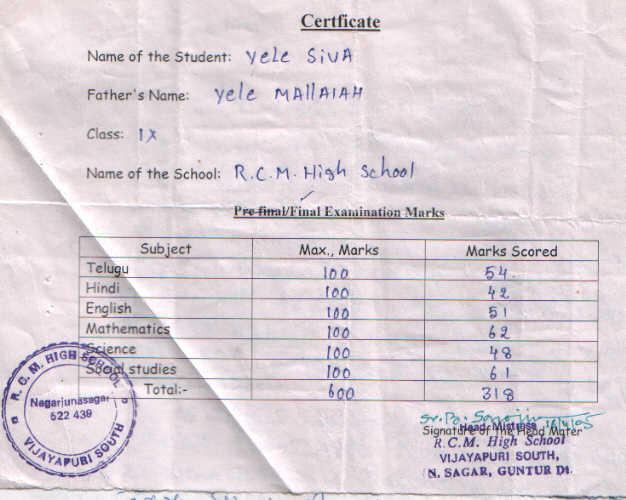 Certficate
Name of the Student: Yele SIVA
Father's Name: Yele MAllAIAH
Class: IX
Name of the School: R.C.M. High School
Pre-final/Final Examination Marks
Subject Max., Marks Marks Scored
Telugu 100 54
Hindi 100 42
English 100 51
Mathematics 100 62
Science 100 48
Social studies 100 61
Total:- 600 318
R. C. M. HIGH SCHOOL
Nagarjunasagar
522 439
VIJAYAPURI SOUTH
Signature of the Head Mater
Head Mistress
R.C.M. High School
VIJAYAPURI SOUTH,
N. SAGAR, GUNTUR Dt.